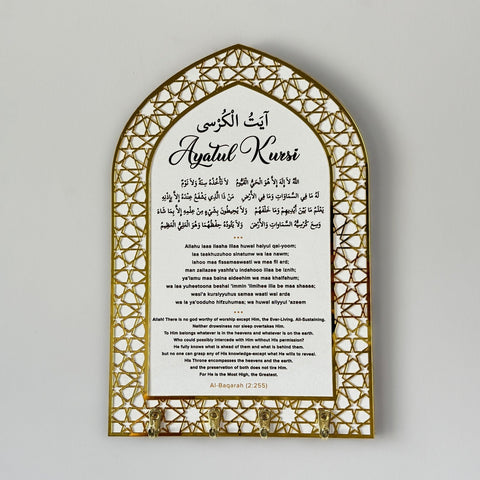 آيَتُ الْكُرْسِى
Ayatul Kursi
اللهُ لاَ إِلَهَ إِلاَّ هُوَ الْحَيُّ الْقَيُّومُ لاَ تَأْخُذُهُ سِنَةٌ وَلاَ نَوْمٌ
لَهُ مَا فِي السَّمَاوَاتِ وَمَا فِي الأَرْضِ مَنْ ذَا الَّذِي يَشْفَعُ عِنْدَهُ إِلاَّ بِإِذْنِهِ
يَعْلَمُ مَا بَيْنَ أَيْدِيهِمْ وَمَا خَلْفَهُمْ وَلاَ يُحِيطُونَ بِشَيْءٍ مِنْ عِلْمِهِ إِلاَّ بِمَا شَاءَ
وَسِعَ كُرْسِيُّهُ السَّمَاوَاتِ وَالأَرْضَ وَلاَ يَئُودُهُ حِفْظُهُمَا وَهُوَ الْعَلِيُّ الْعَظِيمُ
Allahu laaa ilaaha illaa huwal haiyul qai-yoom;
laa taakhuzuhoo sinatunw wa laa nawm;
lahoo maa fissamaawaati wa maa fil ard;
man zallazee yashfa'u indahooo illaa be iznih;
ya'lamu maa baina aideehim wa maa khalfahum;
wa laa yuheetoona beshai 'immin 'ilmihee illa be maa shaaa;
wasi'a kursiyyuhus samaa waati wal arda
wa la ya'ooduho hifzuhumaa; wa huwal aliyyul azeem
Allah! There is no god worthy of worship except Him, the Ever-Living, All-Sustaining.
Neither drowsiness nor sleep overtakes Him.
To Him belongs whatever is in the heavens and whatever is on the earth.
Who could possibly intercede with Him without His permission?
He fully knows what is ahead of them and what is behind them,
but no one can grasp any of His knowledge-except what He wills to reveal.
His Throne encompasses the heavens and the earth,
and the preservation of both does not tire Him.
For He is the Most High, the Greatest.
Al-Baqarah (2:255)